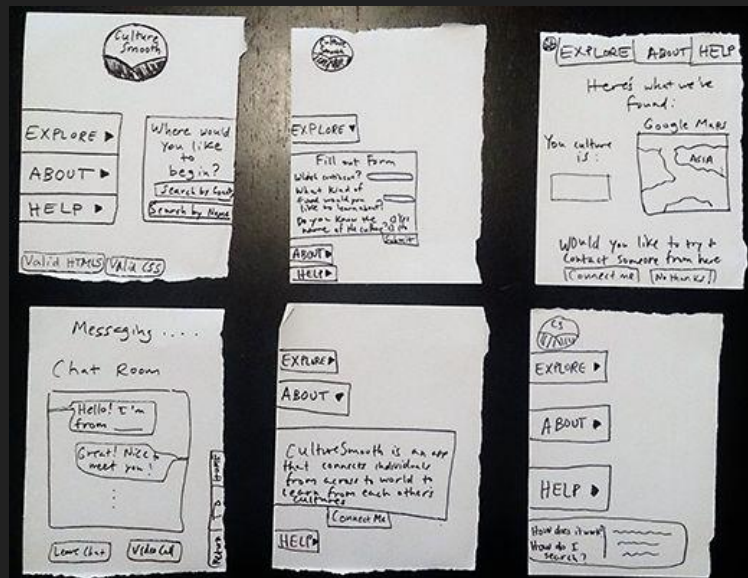 Culture
Smooth
EXPLORE
ABOUT
HELP
Where would
you like
to
begin?
Search by
Search by Name
Valid HTML5
Valid CSS
Culture
Smooth
EXPLORE
Fill out Form
Which continent?
What kind of
food would you
like to learn about?
Do you know the
name of the culture?
Submit
ABOUT
HELP
EXPLORE ABOUT HELP
Here's what we've
found:
Google Maps
You culture
is:
ASIA
Would you like to try to
contact someone from here
Connect me
No thanks!
Messaging ....
Chat Room
Hello! I'm
from ____
Great! Nice to
meet you!
Leave Chat
Video Call
Return to Home
EXPLORE
ABOUT
CultureSmooth is an app
that connects individuals
from across to world to
learn from each other's
cultures
Connect Me
HELP
CS
EXPLORE
ABOUT
HELP
How does it work?
How do I
search?